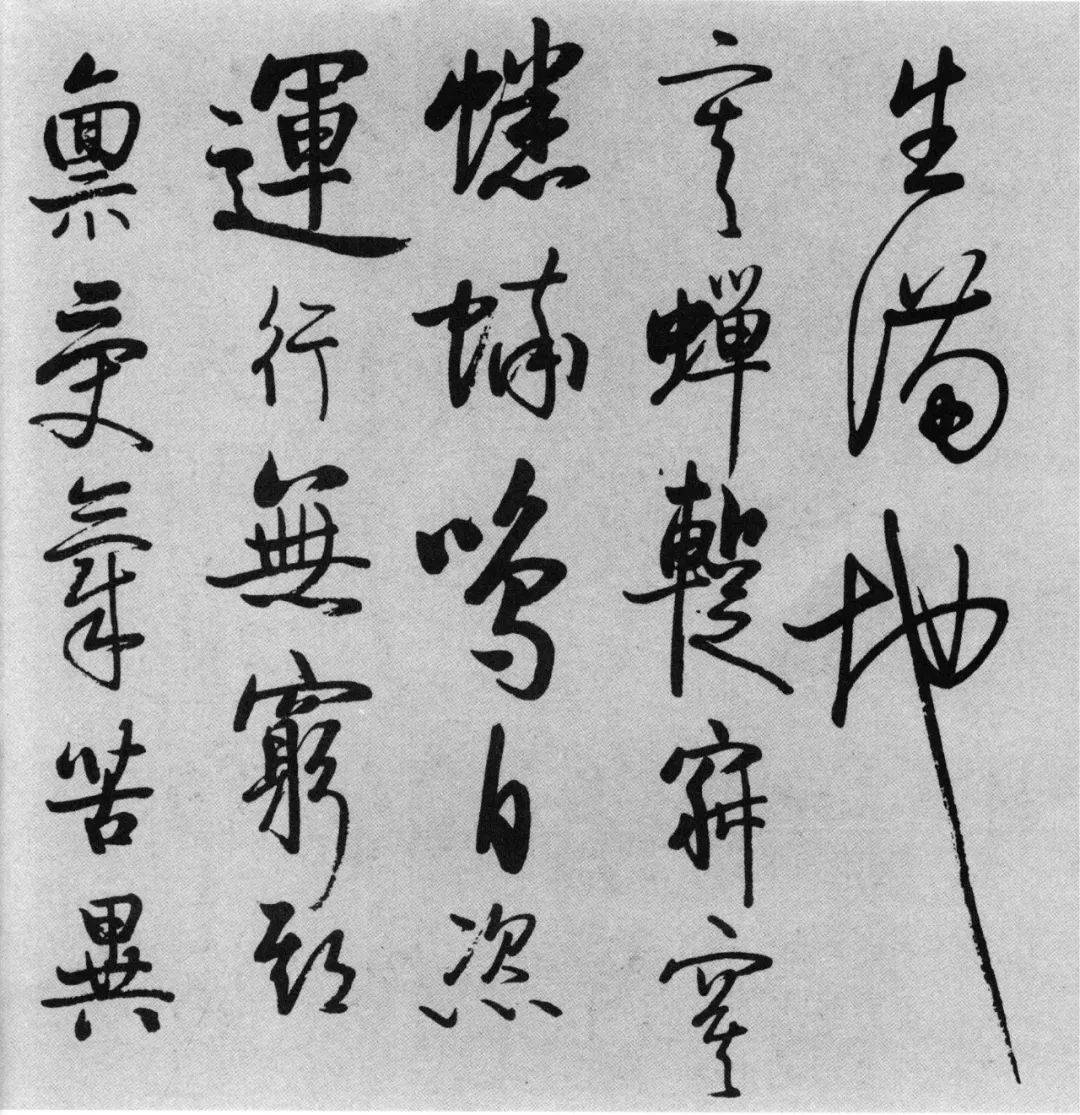 生滿地
寒蟬蹔寂寞
蟋蟀鳴自恣
運行無窮期
稟受氣苦異